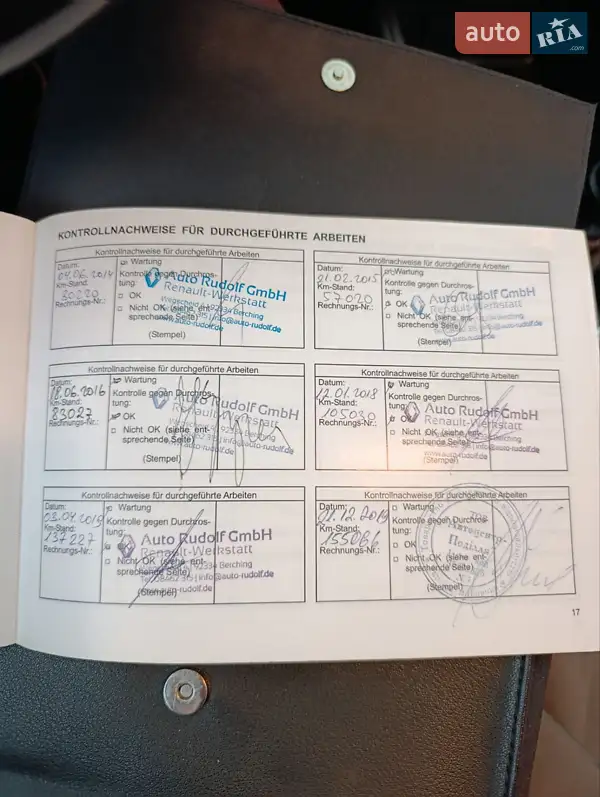 auto RIA.com
KONTROLLNACHWEISE FÜR DURCHGEFÜHRTE ARBEITEN
Kontrollnachweise für durchgeführte Arbeiten
Datum:
04.06.2014
Km-Stand:
30220
Rechnungs-Nr.:
Wartung
Kontrolle gegen Durchros-
tung:
OK
Nicht OK (siehe ent-
sprechende Seite)
(Stempel)
Auto Rudolf GmbH
Renault-Werkstatt
Kontrollnachweise für durchgeführte Arbeiten
Datum:
21.02.2015
Km-Stand:
57020
Rechnungs-Nr.:
Wartung
Kontrolle gegen Durchros-
tung:
OK
Nicht OK (siehe ent-
sprechende Seite)
(Stempel)
Auto Rudolf GmbH
Renault-Werkstatt
Kontrollnachweise für durchgeführte Arbeiten
Datum:
18.06.2016
Km-Stand:
83027
Rechnungs-Nr.:
Wartung
Kontrolle gegen Durchros-
tung:
OK
Nicht OK (siehe ent-
sprechende Seite)
(Stempel)
Auto Rudolf GmbH
Renault-Werkstatt
Kontrollnachweise für durchgeführte Arbeiten
Datum:
12.01.2018
Km-Stand:
105030
Rechnungs-Nr.:
Wartung
Kontrolle gegen Durchros-
tung:
OK
Nicht OK (siehe ent-
sprechende Seite)
(Stempel)
Auto Rudolf GmbH
Renault-Werkstatt
Kontrollnachweise für durchgeführte Arbeiten
Datum:
03.04.2019
Km-Stand:
137227
Rechnungs-Nr.:
Wartung
Kontrolle gegen Durchros-
tung:
OK
Nicht OK (siehe ent-
sprechende Seite)
(Stempel)
Auto Rudolf GmbH
Renault-Werkstatt
Kontrollnachweise für durchgeführte Arbeiten
Datum:
21.12.2019
Km-Stand:
Rechnungs-Nr.:
Wartung
Kontrolle gegen Durchros-
tung:
OK
Nicht OK (siehe ent-
sprechende Seite)
(Stempel)
17